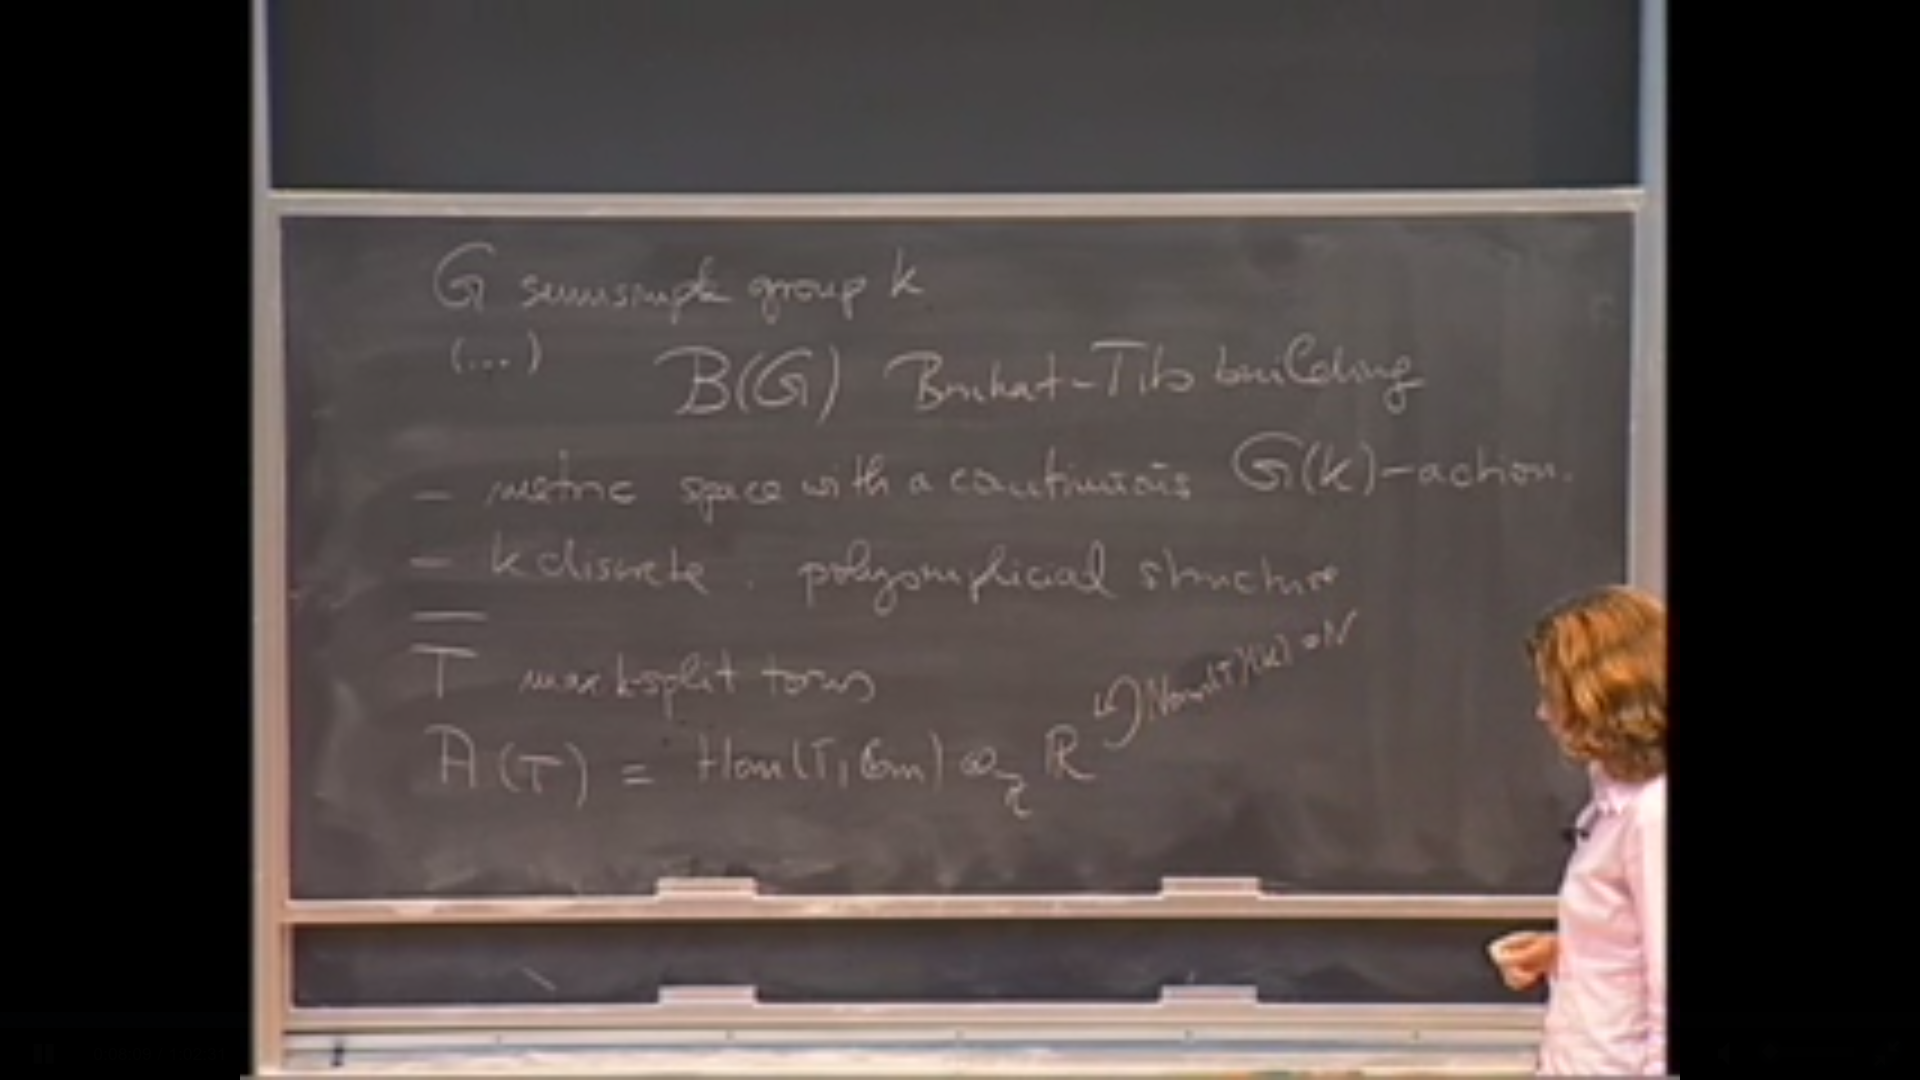 G semisimple group k
(...)
B(G) Bruhat-Tits building
- metric space with a continuous G(k)-action.
- k discrete : polysimplicial structure
T max k-split torus
A(T) = Hom(T, Gm) ⊗_Z ℝ ↺ Norm(T)(k) = N